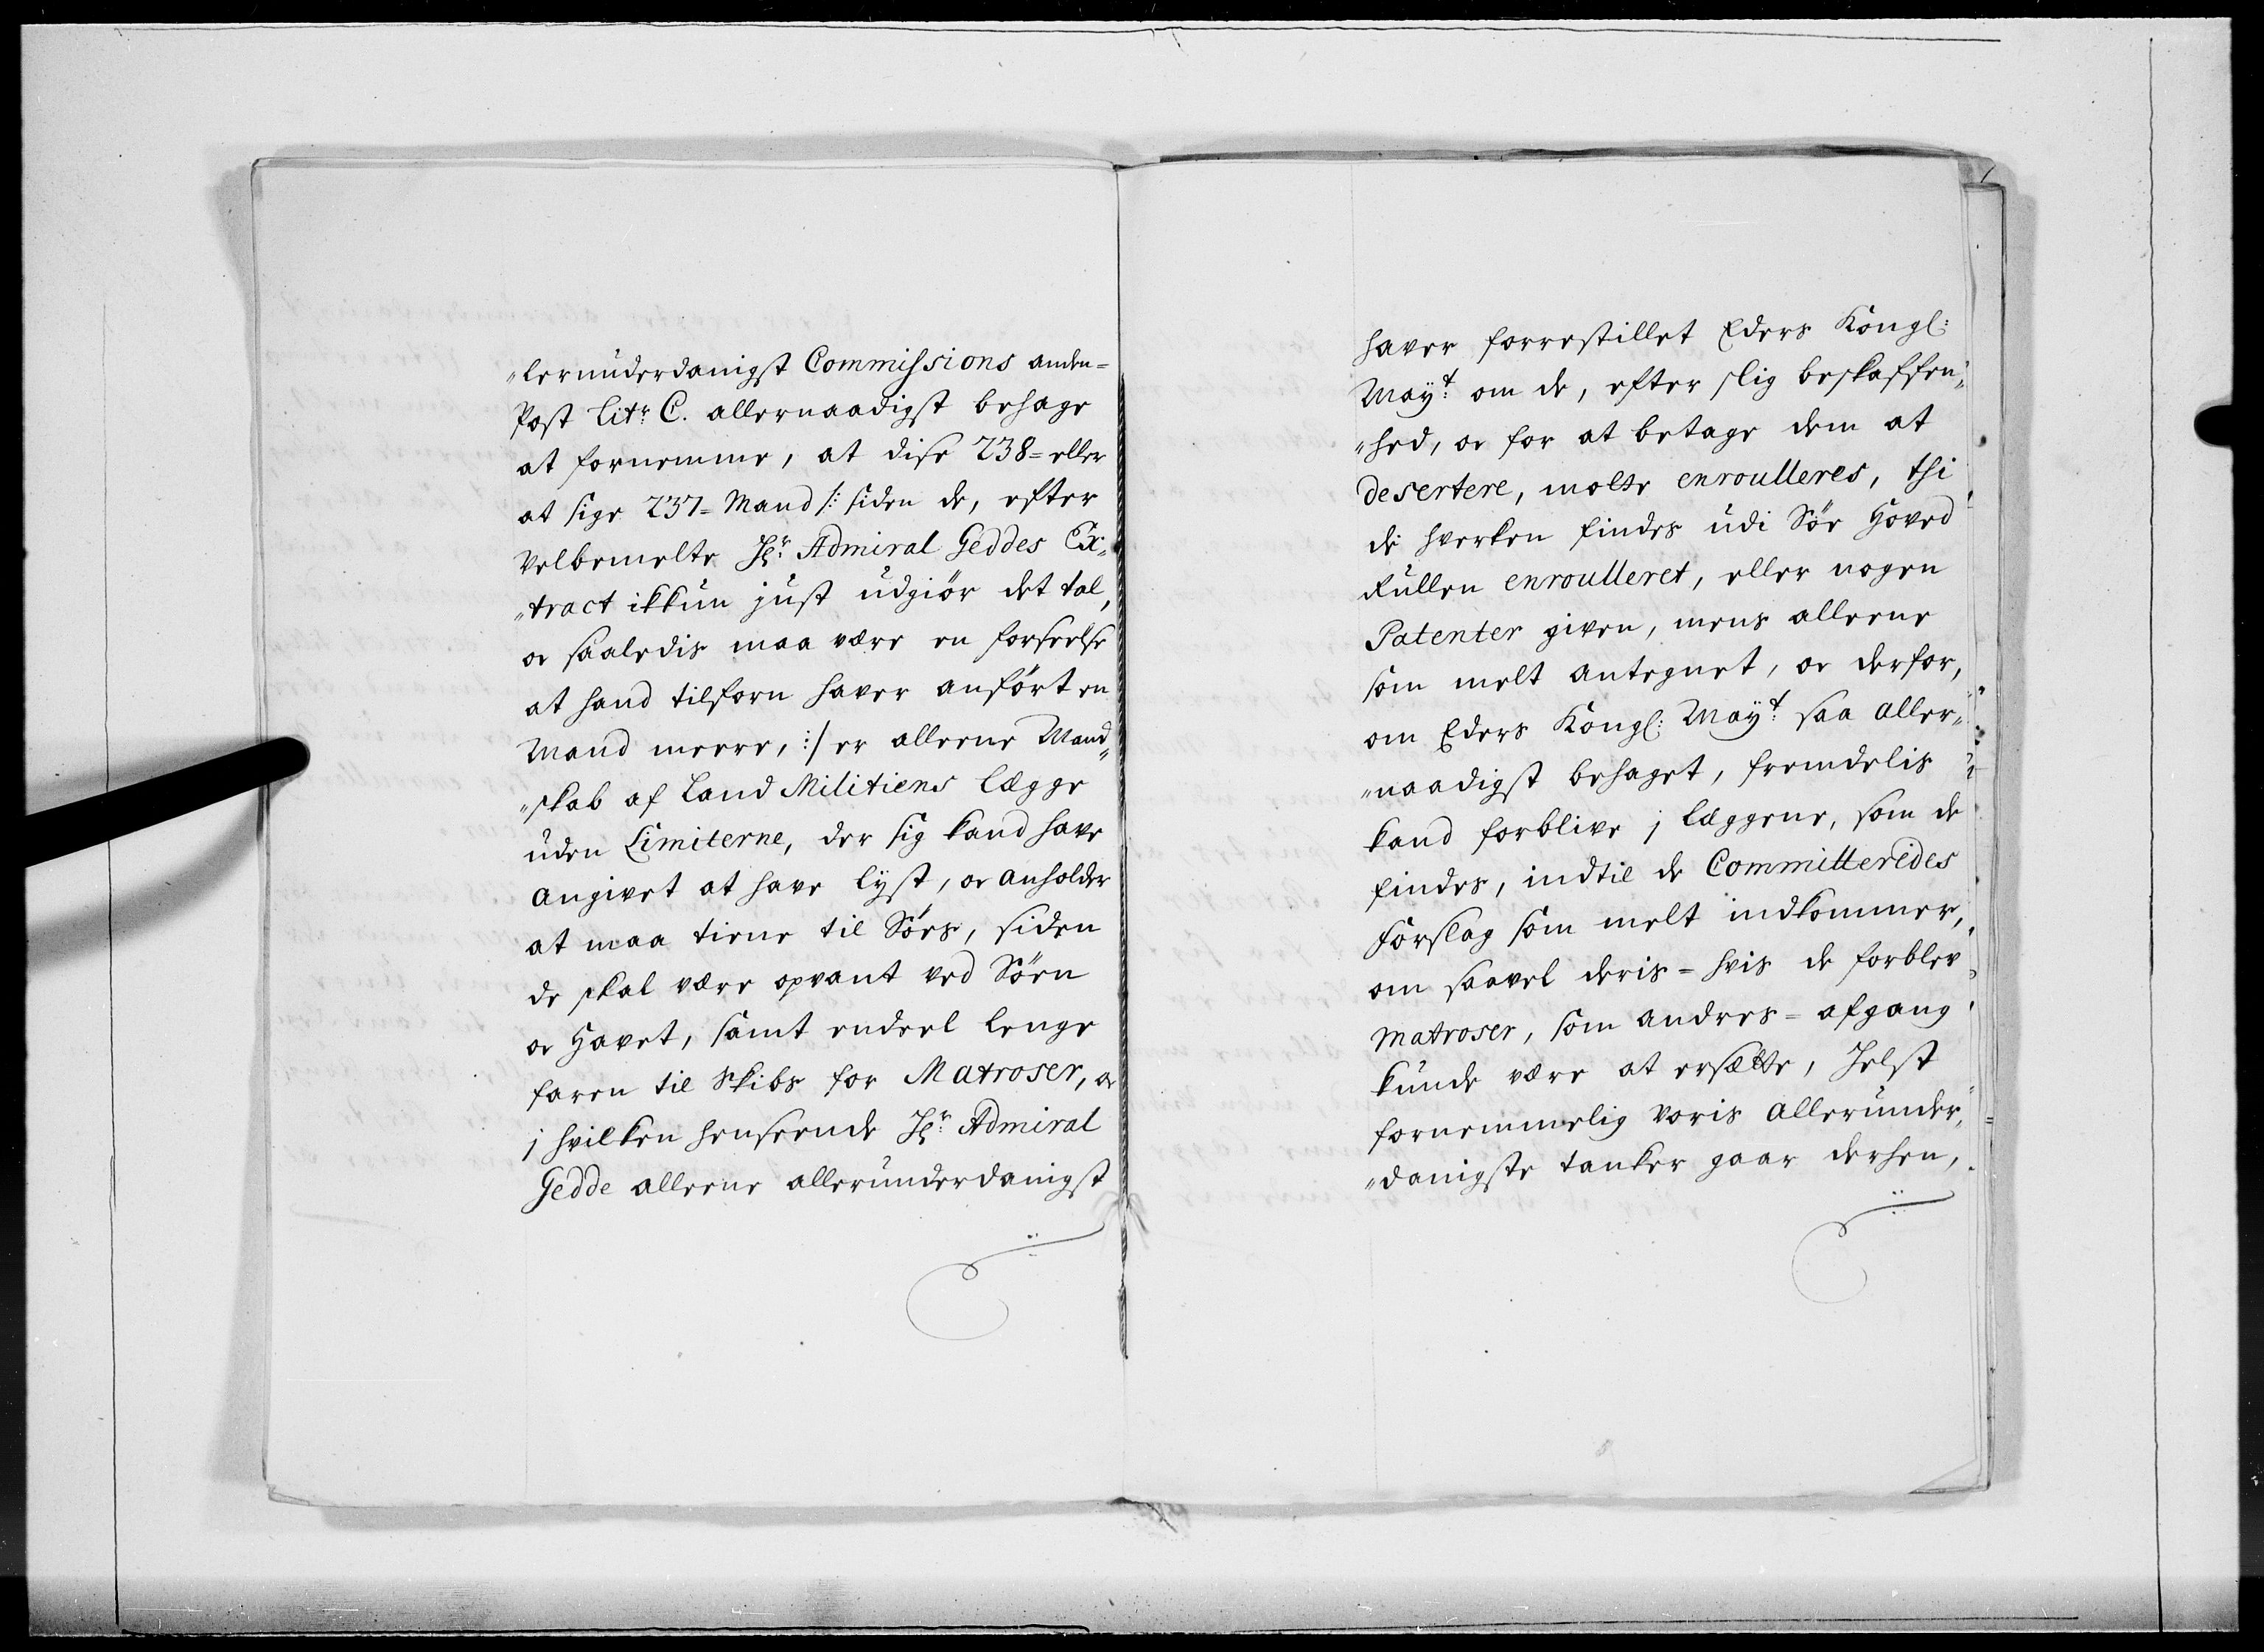 „lerunderdanigst Commissions anden=
Post Litr: C. allernaadigst behage
at fornemme, at dise 238= eller
at sige 237= Mand /: siden de, efter
Velbemelte Hr: Admiral Geddes Ex„
„tract ikkun just udgiör det tal,
oc saaledis maa være en forseelse
at hand tilforn haver anført en
Mand meere, :/ er alleene Mand„
„skab af Land Militiens lægge
uden Limiterne, der sig kand have
angivet at have lyst, oc anholder
at maa tiene til Söes, siden
de skal være opvant ved Söen
oc Havet, samt endeel lenge
faren til Skibs for Matroser, oc
j hvilken henseende Hr: Admiral
Gedde alleene allerunderdanigst
haver forrestillet Eders Kongl:
Mayt: om de, efter slig beskaffen„
„hed, oc for at betage dem at
desertere, motte enroulleres, thi
de hverken findes udi Söe Hoved
Rullen enroulleret, eller nogen
Patenter given, mens alleene
som melt antegnet, oc derfor,
om Eders Kongl: Mayt: saa aller„
„naadigst behaget, fremdelis
kand forblive j læggene, som de
findes, indtil de Committeredes
Forslag som melt indkommer,
om saavel deris= hvis de forblev
Matroser, som andres= afgang
kunde være at ersætte, Helst
fornemmelig voris allerunder„
„danigste tanker gaar derhen,